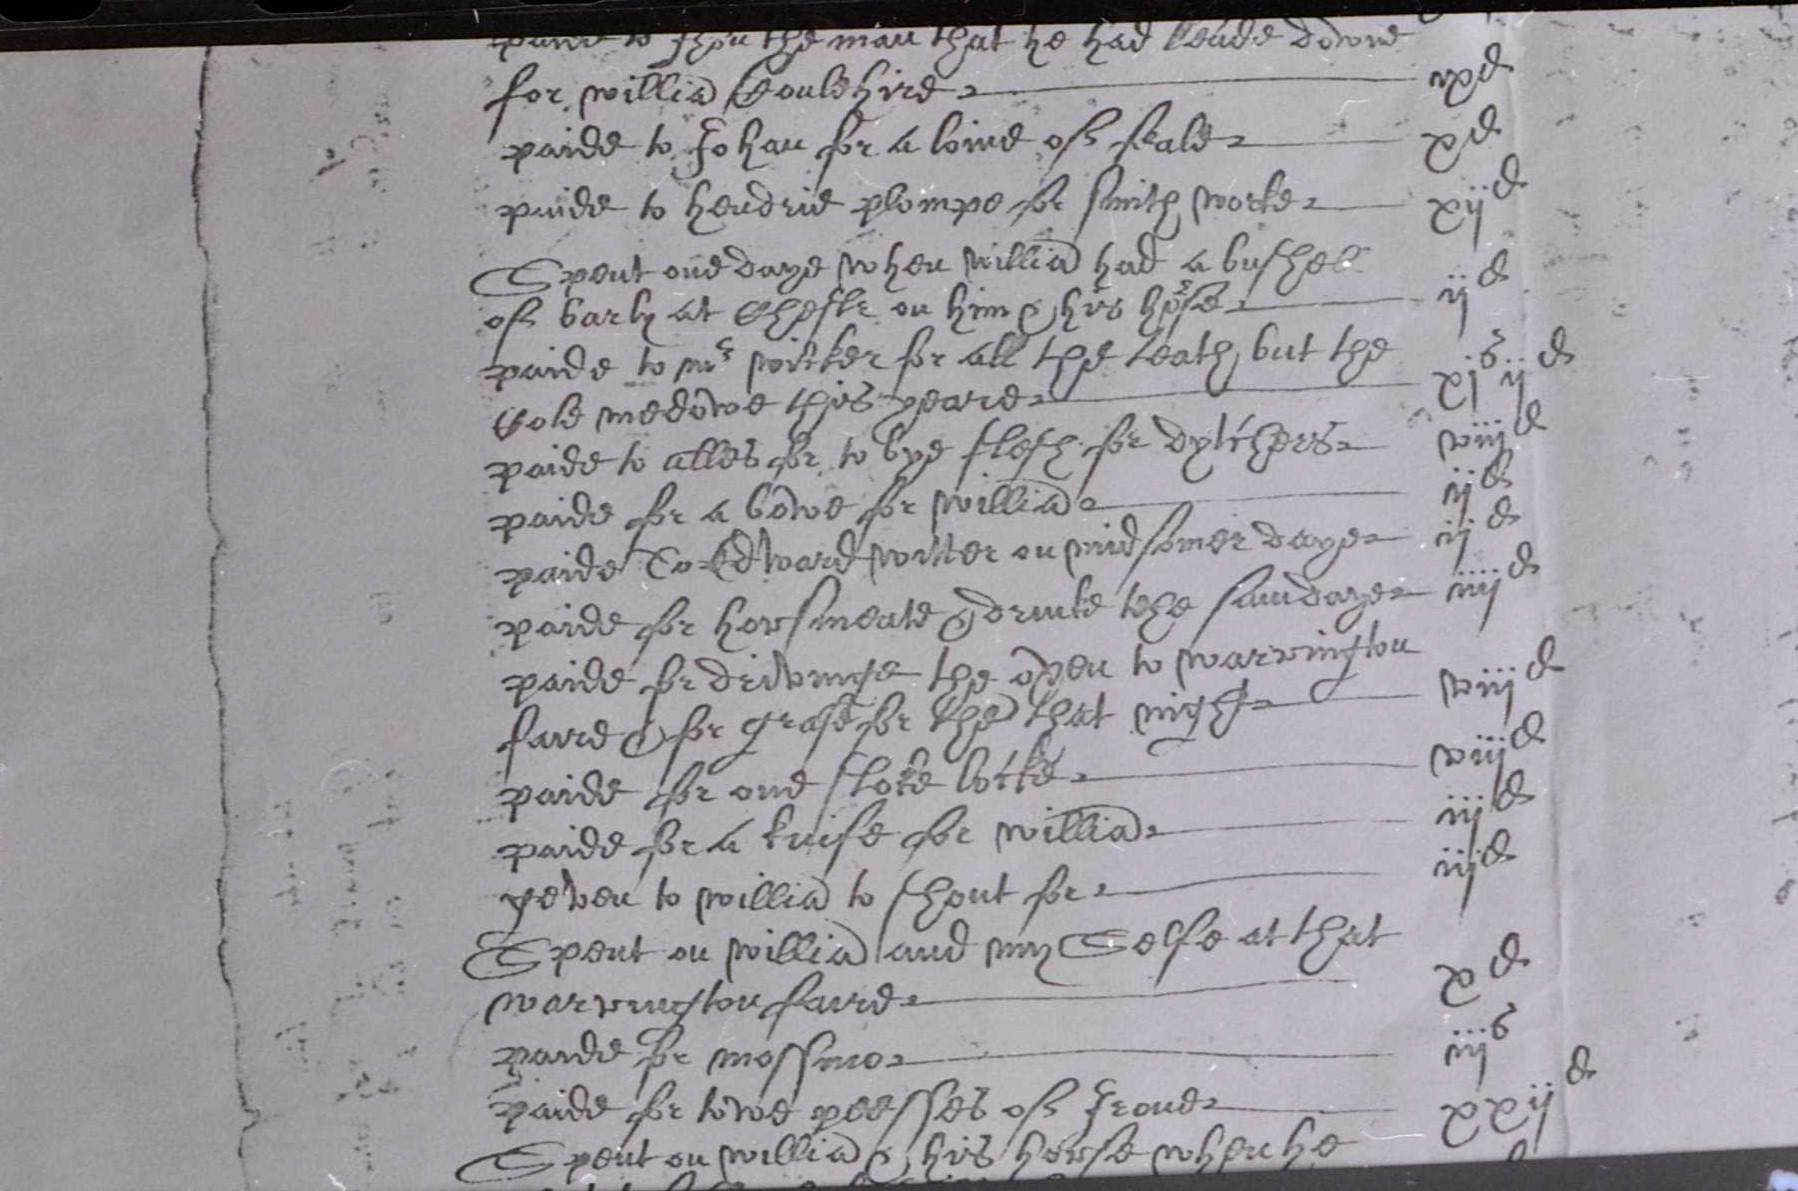 paide to Jhon the man that he had leade downe
for willia Couldhird xd
paide to Johan for a loine of feale xd
paide to hendrie plompe for smith worke xijd
Spent one daye when willia had a bushell
of barly at Chester on him & his horse ijd
paide to mr wicker for all the teath but the
Cole medowe this yeare xjs ijd
paide to alles for to bye flesh for dytchers viijd
paide for a bowe for willia ijd
paide To Edward witter on midsomer daye ijd
paide for horsmeate & drinke the same daye iiijd
paide for drivinge the oxen to warrington
faire & for grasse for the that night viijd
paide for one stoke locke viijd
paide for a knife for willia iijd
yeven to willia to shout for iijd
Spent on willia and my Selfe at that
warrington faire xd
paide for mossmo iijs
paide for towe peesses of Irone xxijd
Spent on willia & his horse when he